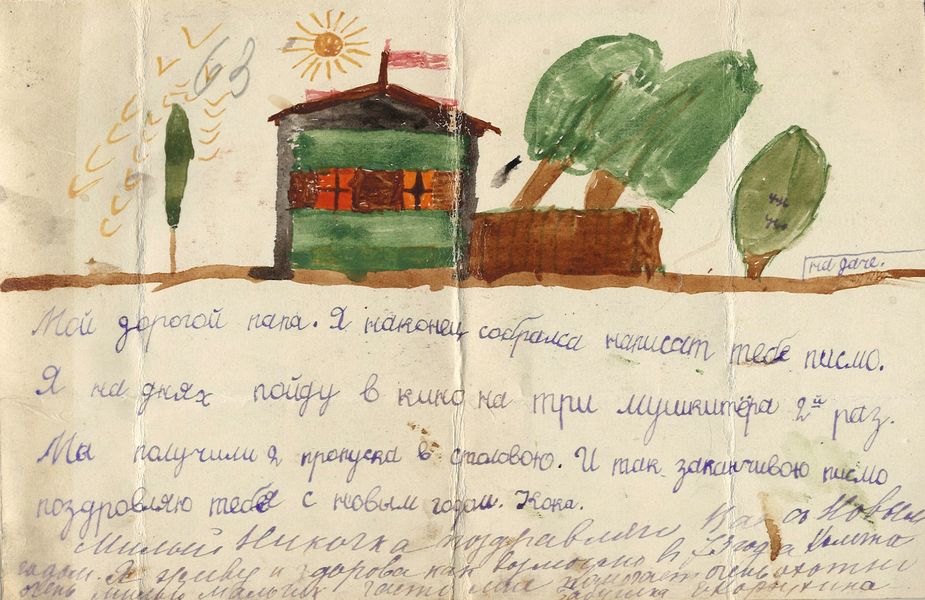 63
на даче.
Мой дорогой папа. Я наконец собрался написат тебе писмо.
Я на днях пойду в кино на три мушкитёра 2й раз.
Мы получили 2 пропуска в столовою. И так заканчивою писмо
поздровляю тебя с новым годом. Кока.
Милый Никочка поздравляю Вас с Новым
годом. Я жива и здорова как возможно в 73 года
очень милый мальчик